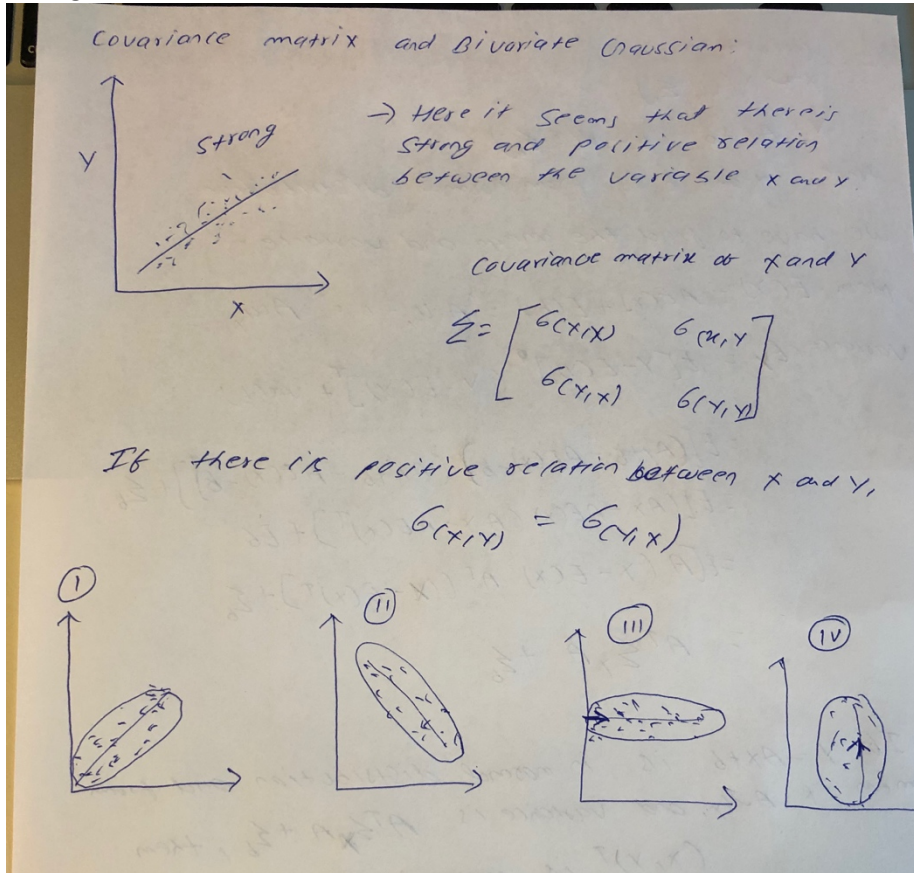 Covariance matrix and Bivariate Gaussian:
Y
Strong
X
→ Here it seems that there is
Strong and positive relation
between the variable x and y.
Covariance matrix of X and Y
Σ = [ σ(X,X) σ(X,Y
σ(Y,X) σ(Y,Y) ]
If there is positive relation between x and y,
σ(X,Y) = σ(Y,X)
I
II
III
IV